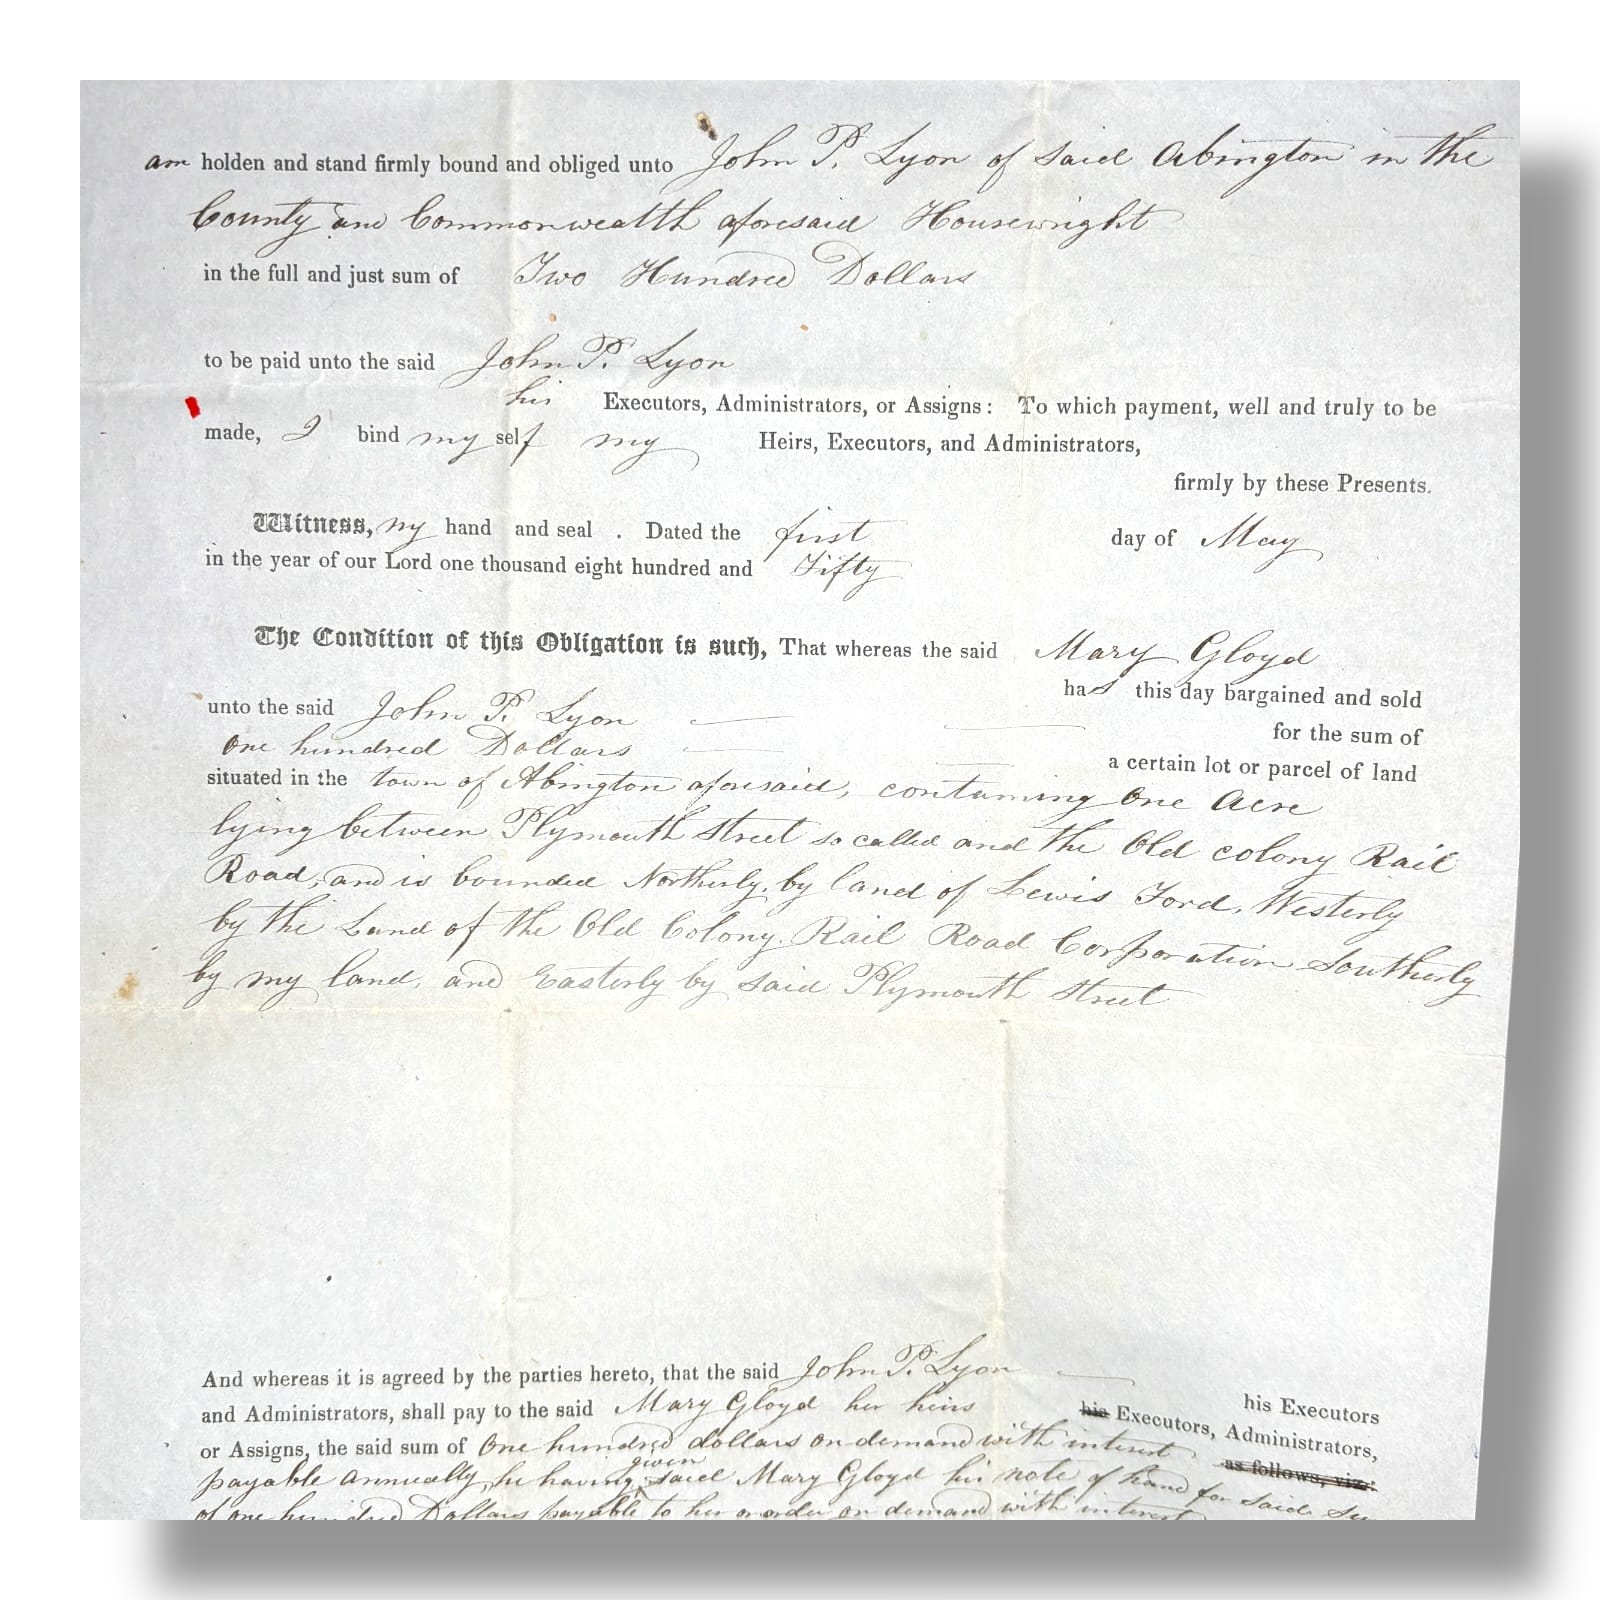 am holden and stand firmly bound and obliged unto John P. Lyon of said Abington in the
County and Commonwealth aforesaid Housewright
in the full and just sum of Two Hundred Dollars
to be paid unto the said John P. Lyon
his Executors, Administrators, or Assigns: To which payment, well and truly to be
made, I bind my self my Heirs, Executors, and Administrators,
firmly by these Presents.
Witness, my hand and seal . Dated the first day of May
in the year of our Lord one thousand eight hundred and Fifty
The Condition of this Obligation is such, That whereas the said Mary Gloyd
has this day bargained and sold
unto the said John P. Lyon for the sum of
One hundred Dollars a certain lot or parcel of land
situated in the town of Abington aforesaid, containing One Acre
lying between Plymouth Street so called and the Old colony Rail
Road, and is bounded Northerly, by land of Lewis Ford, Westerly
by the Land of the Old Colony Rail Road Corporation Southerly
by my land, and Easterly by said Plymouth Street
And whereas it is agreed by the parties hereto, that the said John P. Lyon his Executors
and Administrators, shall pay to the said Mary Gloyd her heirs his Executors, Administrators,
or Assigns, the said sum of One hundred dollars on demand with interest as follows, viz:
payable annually, he having given said Mary Gloyd his note of hand for said
of one hundred Dollars payable to her or order on demand with interest